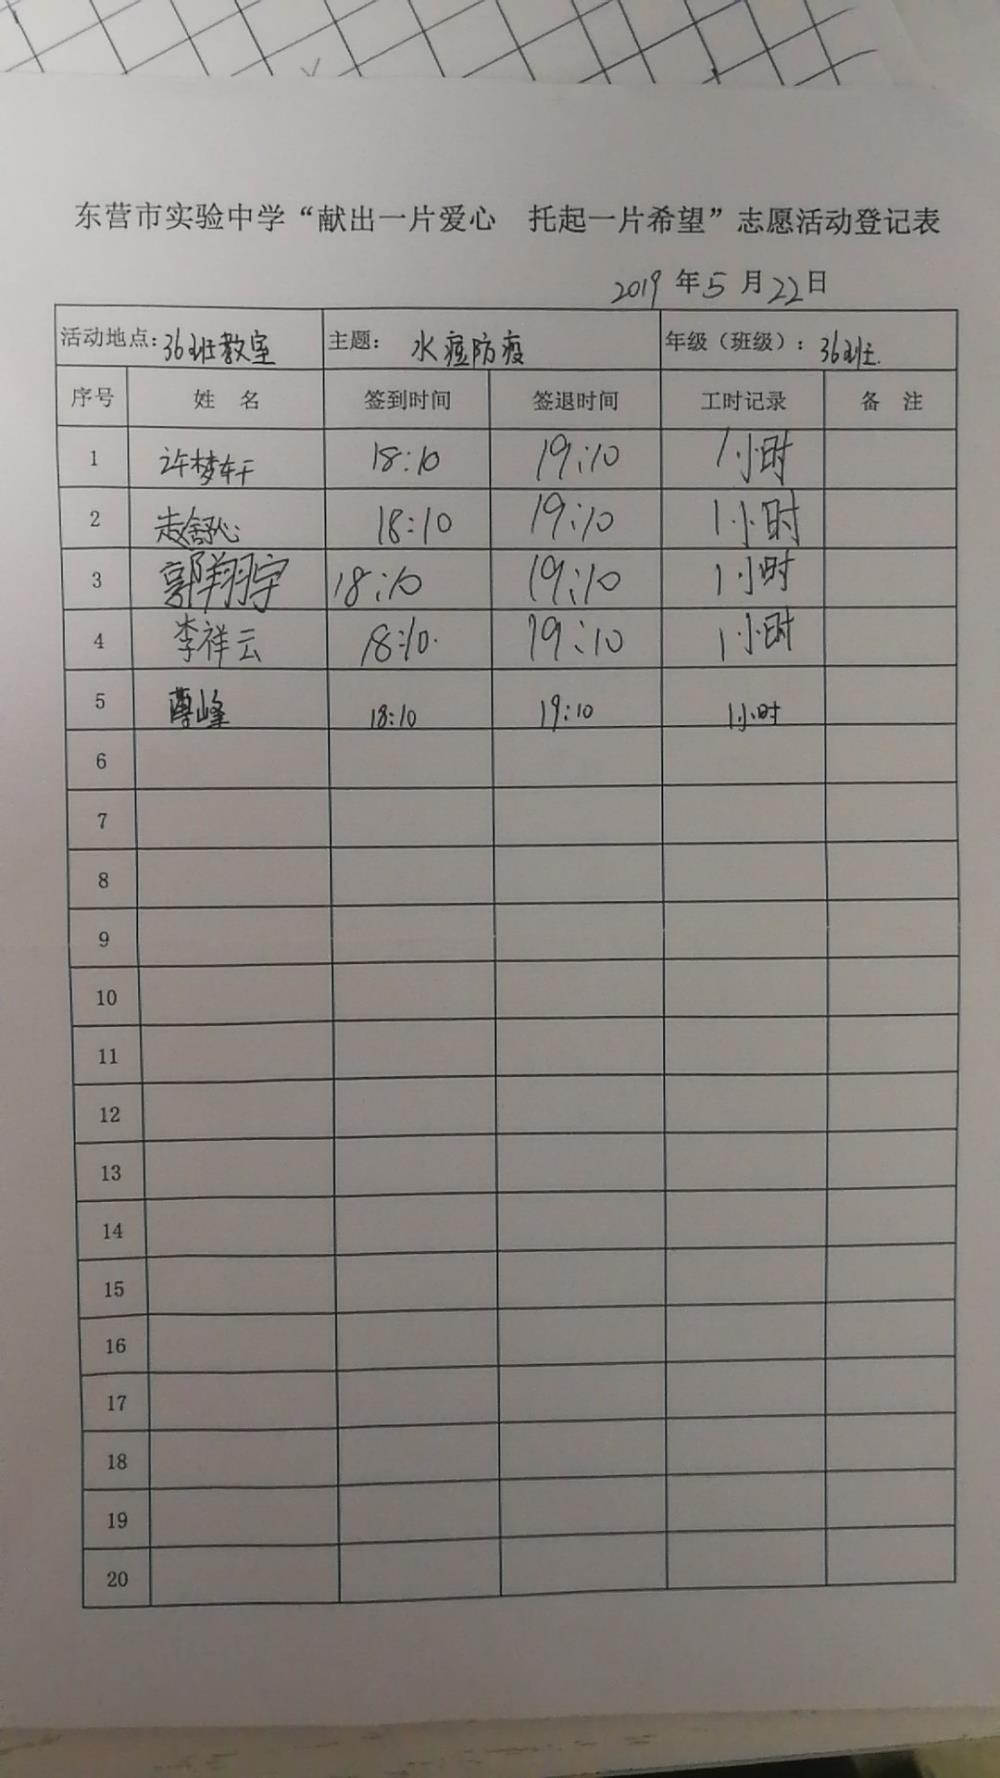 东营市实验中学“献出一片爱心 托起一片希望”志愿活动登记表
2019 年 5 月 22 日
活动地点：36班教室 主题： 水痘防疫 年级（班级）：36班.
序号 姓 名 签到时间 签退时间 工时记录 备 注
1 许梦轩 18:10 19:10 1小时
2 赵舒心 18:10 19:10 1小时
3 郭翔宇 18:10 19:10 1小时
4 李祥云 18:10. 19:10 1小时
5 峰 18:10 19:10 1小时
6
7
8
9
10
11
12
13
14
15
16
17
18
19
20